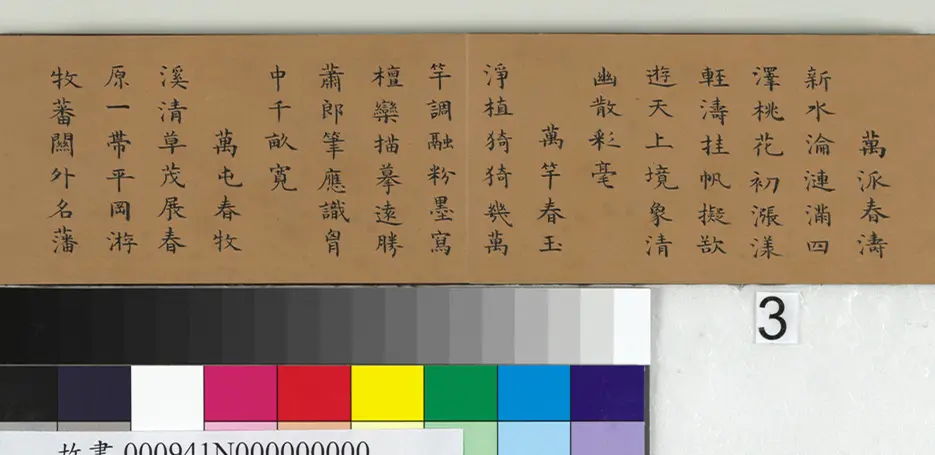 萬派春濤
新水淪漣滿四
澤桃花初漲漾
輕濤挂帆擬欲
遊天上境象清
幽散彩毫
萬竿春玉
淨植猗猗幾萬
竿調融粉墨寫
檀欒描摹遠勝
蕭郎筆應識胷
中千畝寬
萬屯春牧
溪清草茂展春
原一帶平岡游
牧蕃關外名藩
3
故畫 000941N000000000